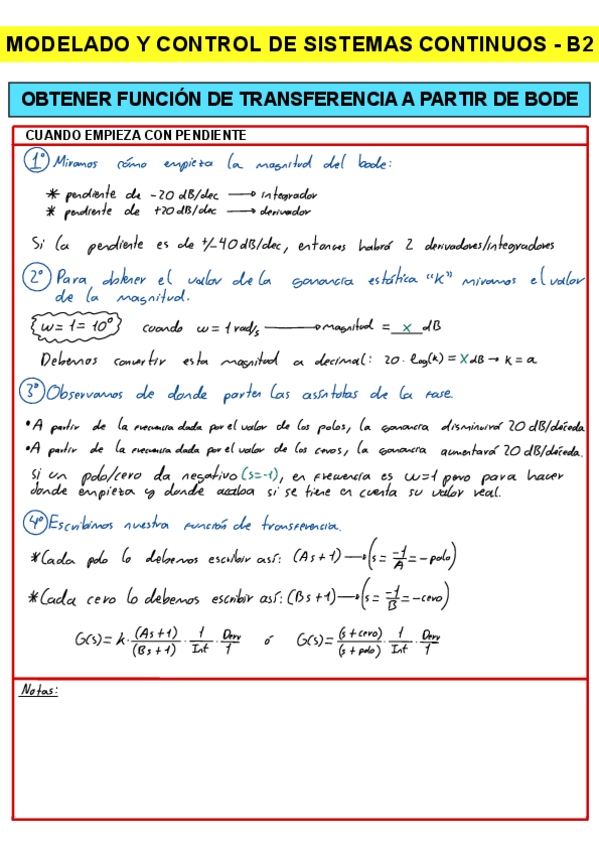 MODELADO Y CONTROL DE SISTEMAS CONTINUOS - B2
OBTENER FUNCIÓN DE TRANSFERENCIA A PARTIR DE BODE
CUANDO EMPIEZA CON PENDIENTE
1º Miramos cómo empieza la magnitud del bode:
* pendiente de -20 dB/dec → integrador
* pendiente de +20 dB/dec → derivador
Si la pendiente es de +/-40 dB/dec, entonces habrá 2 derivadores/integradores
2º Para obtener el valor de la ganancia estática "K" miramos el valor
de la magnitud.
w=1=10⁰ cuando w=1 rad/s → magnitud = x dB
Debemos convertir esta magnitud a decimal: 20·log(k) = X dB → k = a
3º Observamos de donde parten las asíntotas de la fase.
• A partir de la frecuencia dada por el valor de los polos, la ganancia disminuirá 20 dB/década
• A partir de la frecuencia dada por el valor de los ceros, la ganancia aumentará 20 dB/década.
Si un polo/cero da negativo (s=-1), en frecuencia es w=1 pero para hacer
donde empieza y donde acaba si se tiene en cuenta su valor real.
4º Escribimos nuestra función de transferencia.
* Cada polo lo debemos escribir así: (As+1) → (s = -1/A = -polo)
* Cada cero lo debemos escribir así: (Bs+1) → (s = -1/B = -cero)
G(s) = k · (As+1)/(Bs+1) · 1/Int · Derv/1 ó G(s) = (s+cero)/(s+polo) · 1/Int · Derv/1
Notas: